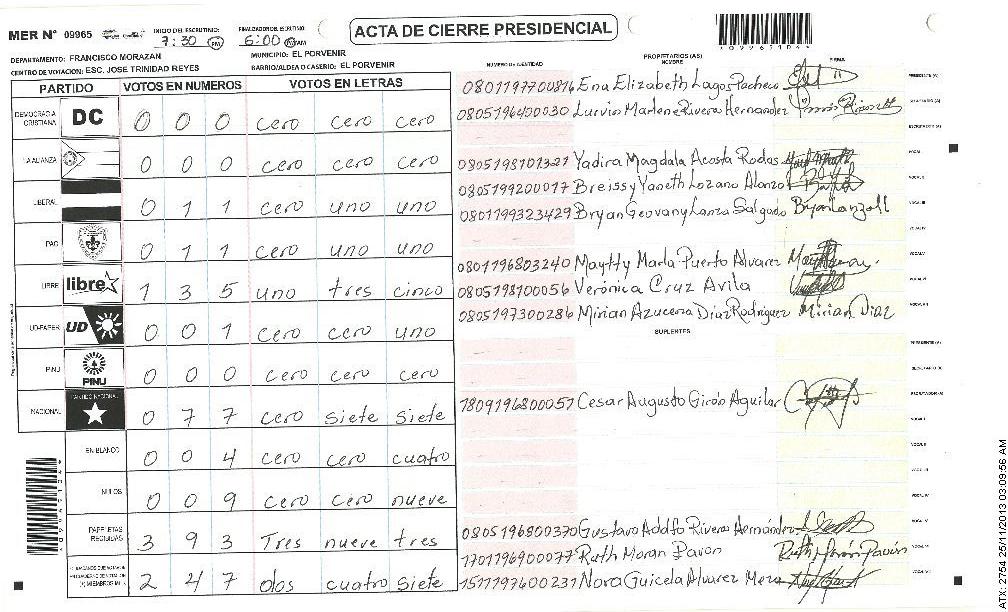 MER N° 09965 INICIO DEL ESCRUTINIO: 7:30 PM FINALIZADOR ESCRUTINIO 6:00 AM ACTA DE CIERRE PRESIDENCIAL
DEPARTAMENTO: FRANCISCO MORAZAN MUNICIPIO: EL PORVENIR
CENTRO DE VOTACION: ESC. JOSE TRINIDAD REYES BARRIO/ALDEA O CASERIO: EL PORVENIR
NUMERO DE IDENTIDAD PROPIETARIOS (AS) NOMBRE FIRMA
PARTIDO VOTOS EN NUMEROS VOTOS EN LETRAS
DEMOCRACIA CRISTIANA DC 0 0 0 cero cero cero
LA ALIANZA 0 0 0 cero cero cero
LIBERAL 0 1 1 cero uno uno
PAC 0 1 1 cero uno uno
LIBRE libre 1 3 5 uno tres cinco
UD-FAPER UD 0 0 1 cero cero uno
PINU PINU 0 0 0 cero cero cero
NACIONAL PARTIDO NACIONAL 0 7 7 cero siete siete
EN BLANCO 0 0 4 cero cero cuatro
NULOS 0 0 9 cero cero nueve
PAPELETAS RECIBIDAS 3 9 3 Tres nueve tres
2 4 7 dos cuatro siete
0801197700816 Ena Elizabeth Lagos Pacheco PRESIDENTE (A)
0805196400030 Lurvin Marlene Rivera Hernandez SECRETARIO (A)
ESCRUTADOR (A)
0805198101321 Yadira Magdala Acosta Rodas VOCAL I
0805199200017 Breissy Yaneth Lozano Alonzo VOCAL II
0801199323429 Bryan Geovany Lanza Salgado Bryan Lanza VOCAL III
VOCAL IV
0801196803240 Maytty Marla Puerto Alvarez VOCAL V
0805198100056 Verónica Cruz Avila VOCAL VI
0805197300286 Mirian Azucena Díaz Rodriguez Mirian Diaz VOCAL VII
SUPLENTES
PRESIDENTE (A)
SECRETARIO (A)
1809196800057 Cesar Augusto Girón Aguilar ESCRUTADOR (A)
VOCAL I
VOCAL II
VOCAL III
VOCAL IV
0805196800370 Gustavo Adolfo Rivera Hernández VOCAL V
1701196900077 Ruth Moran Pavon Ruth Morán Pavón VOCAL VI
1511197600231 Nora Guicela Alvarez Meza VOCAL VII
ATX: 2754 25/11/2013 03:09:56 AM